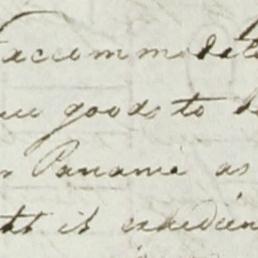 accommodate
goods to
Panama as
it is expedien